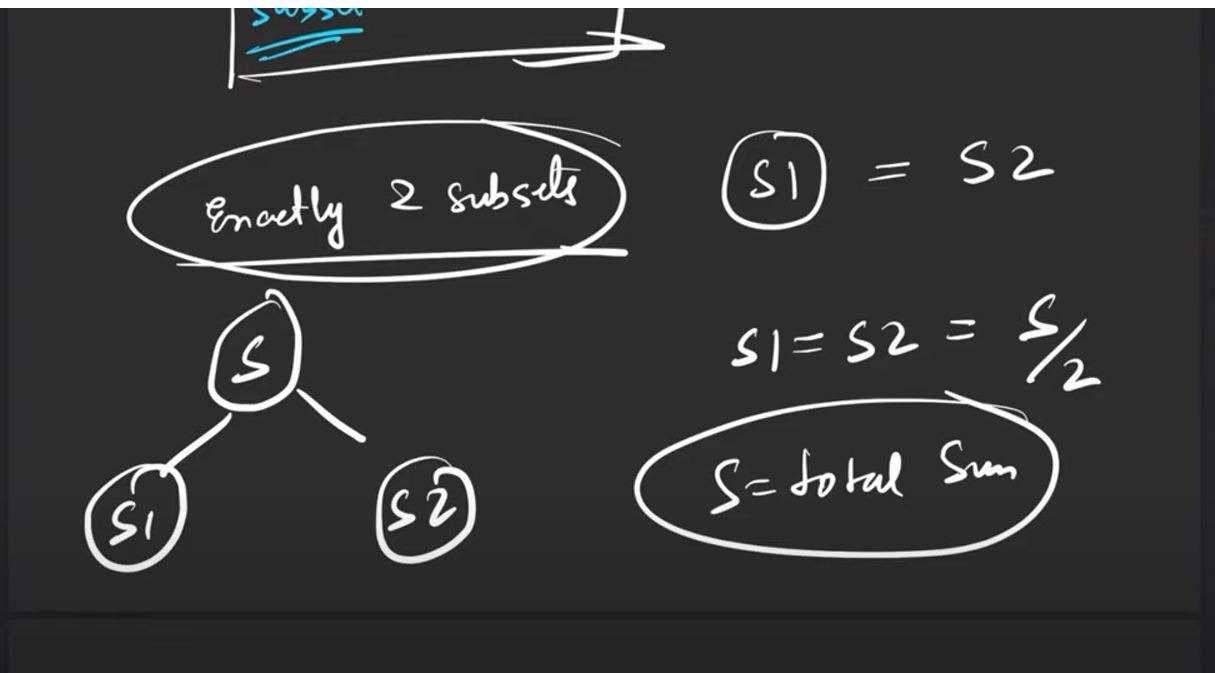 Exactly 2 subsets
S1 = S2
S
S1 = S2 = S/2
S1
S2
S = total Sum